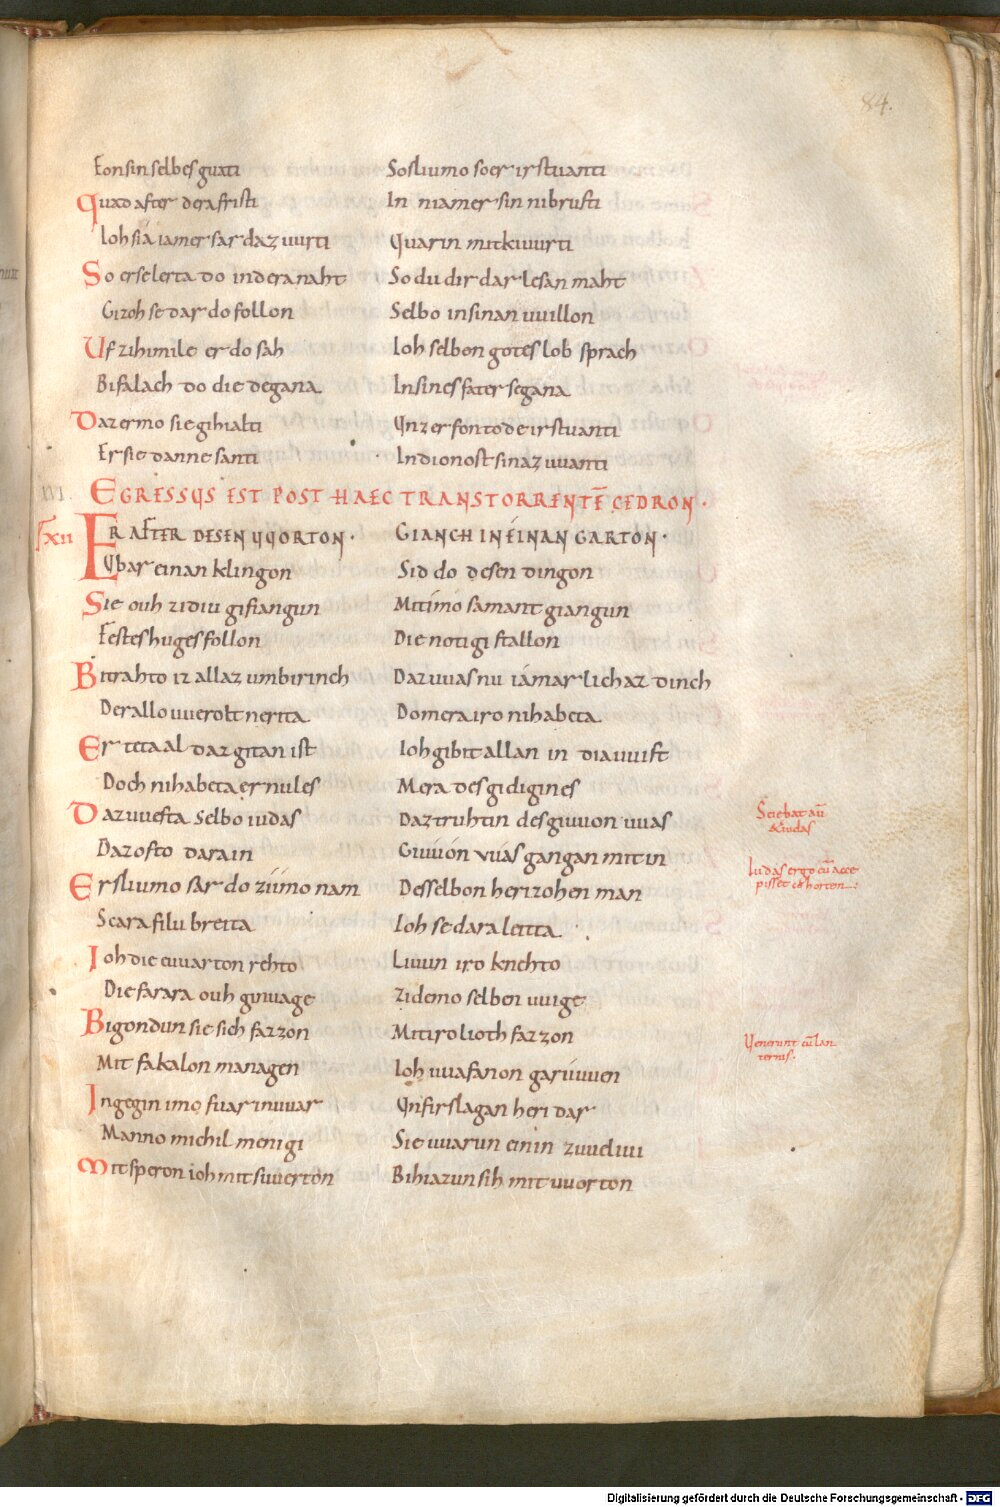 84.
Fonsin selbes guati Sosliumo soer irstuanti
Quad after dera fristi In niamer sin nibrusti
Ioh sia iamer sar daz uurti Quarin mitkiuurti
So er se lerta do in dera naht So du dir dar lesan maht
Gizoh se dar do follon Selbo insinan uuillon
Uf zihimile er do sah Ioh selbon gotes lob sprach
Bifalach do die degana Insines fater segana
Daz er mo sie gihialti Unz er fon tode irstuanti
Er sie danne santi Indionost sinaz uuanti
XVI. EGRESSUS EST POST HAEC TRANSTORRENTE̅ CEDRON.
ER AFTER DESEN UUORTON. GIANCH IN EINAN GARTON.
Ubar einan klingon Sid do desen dingon
Sie ouh zi diu gifiangun Mit imo samant giangun
Festes huges follon Die notigistallon
Bitrahto iz allaz umbirinch Daz uuas nu iámarlichaz dinch
Der allo uuerolt nerita Do mera iro nihabeta
Er teta al daz gitan ist Ioh gibit allan in dia uuist
Doch nihabeta er nu les Mera des gidigines
Daz uuesta selbo iudas Daz truhtin des giuuon uuas
Daz ofto dara in Giuuón uuás gangan mit in
Er sliumo sar do zi imo nam Desselbon herizohen man
Scara filu breita Ioh se dara leitta
Ioh die euuarton rehto Liuun iro knehto
Die farara ouh ginuage Zi demo selben uuige
Bigondun sie sich fazzon Mit iro lioth fazzon
Mit fakalon managen Ioh uuafanon garuuuen
Ingegin imo fuar in uuar Unfirslagan heri dar
Manno michil menigi Sie uuarun einin zuueliui
Mit speron ioh mit suuerton Bihiazun sih mit uuorton
Sciebat au̅
& iudas
Iudas ergo cu̅ acce
pisset cohortem.:
Uenerunt cu̅ lan
ternis:
Digitalisierung gefördert durch die Deutsche Forschungsgemeinschaft - DFG